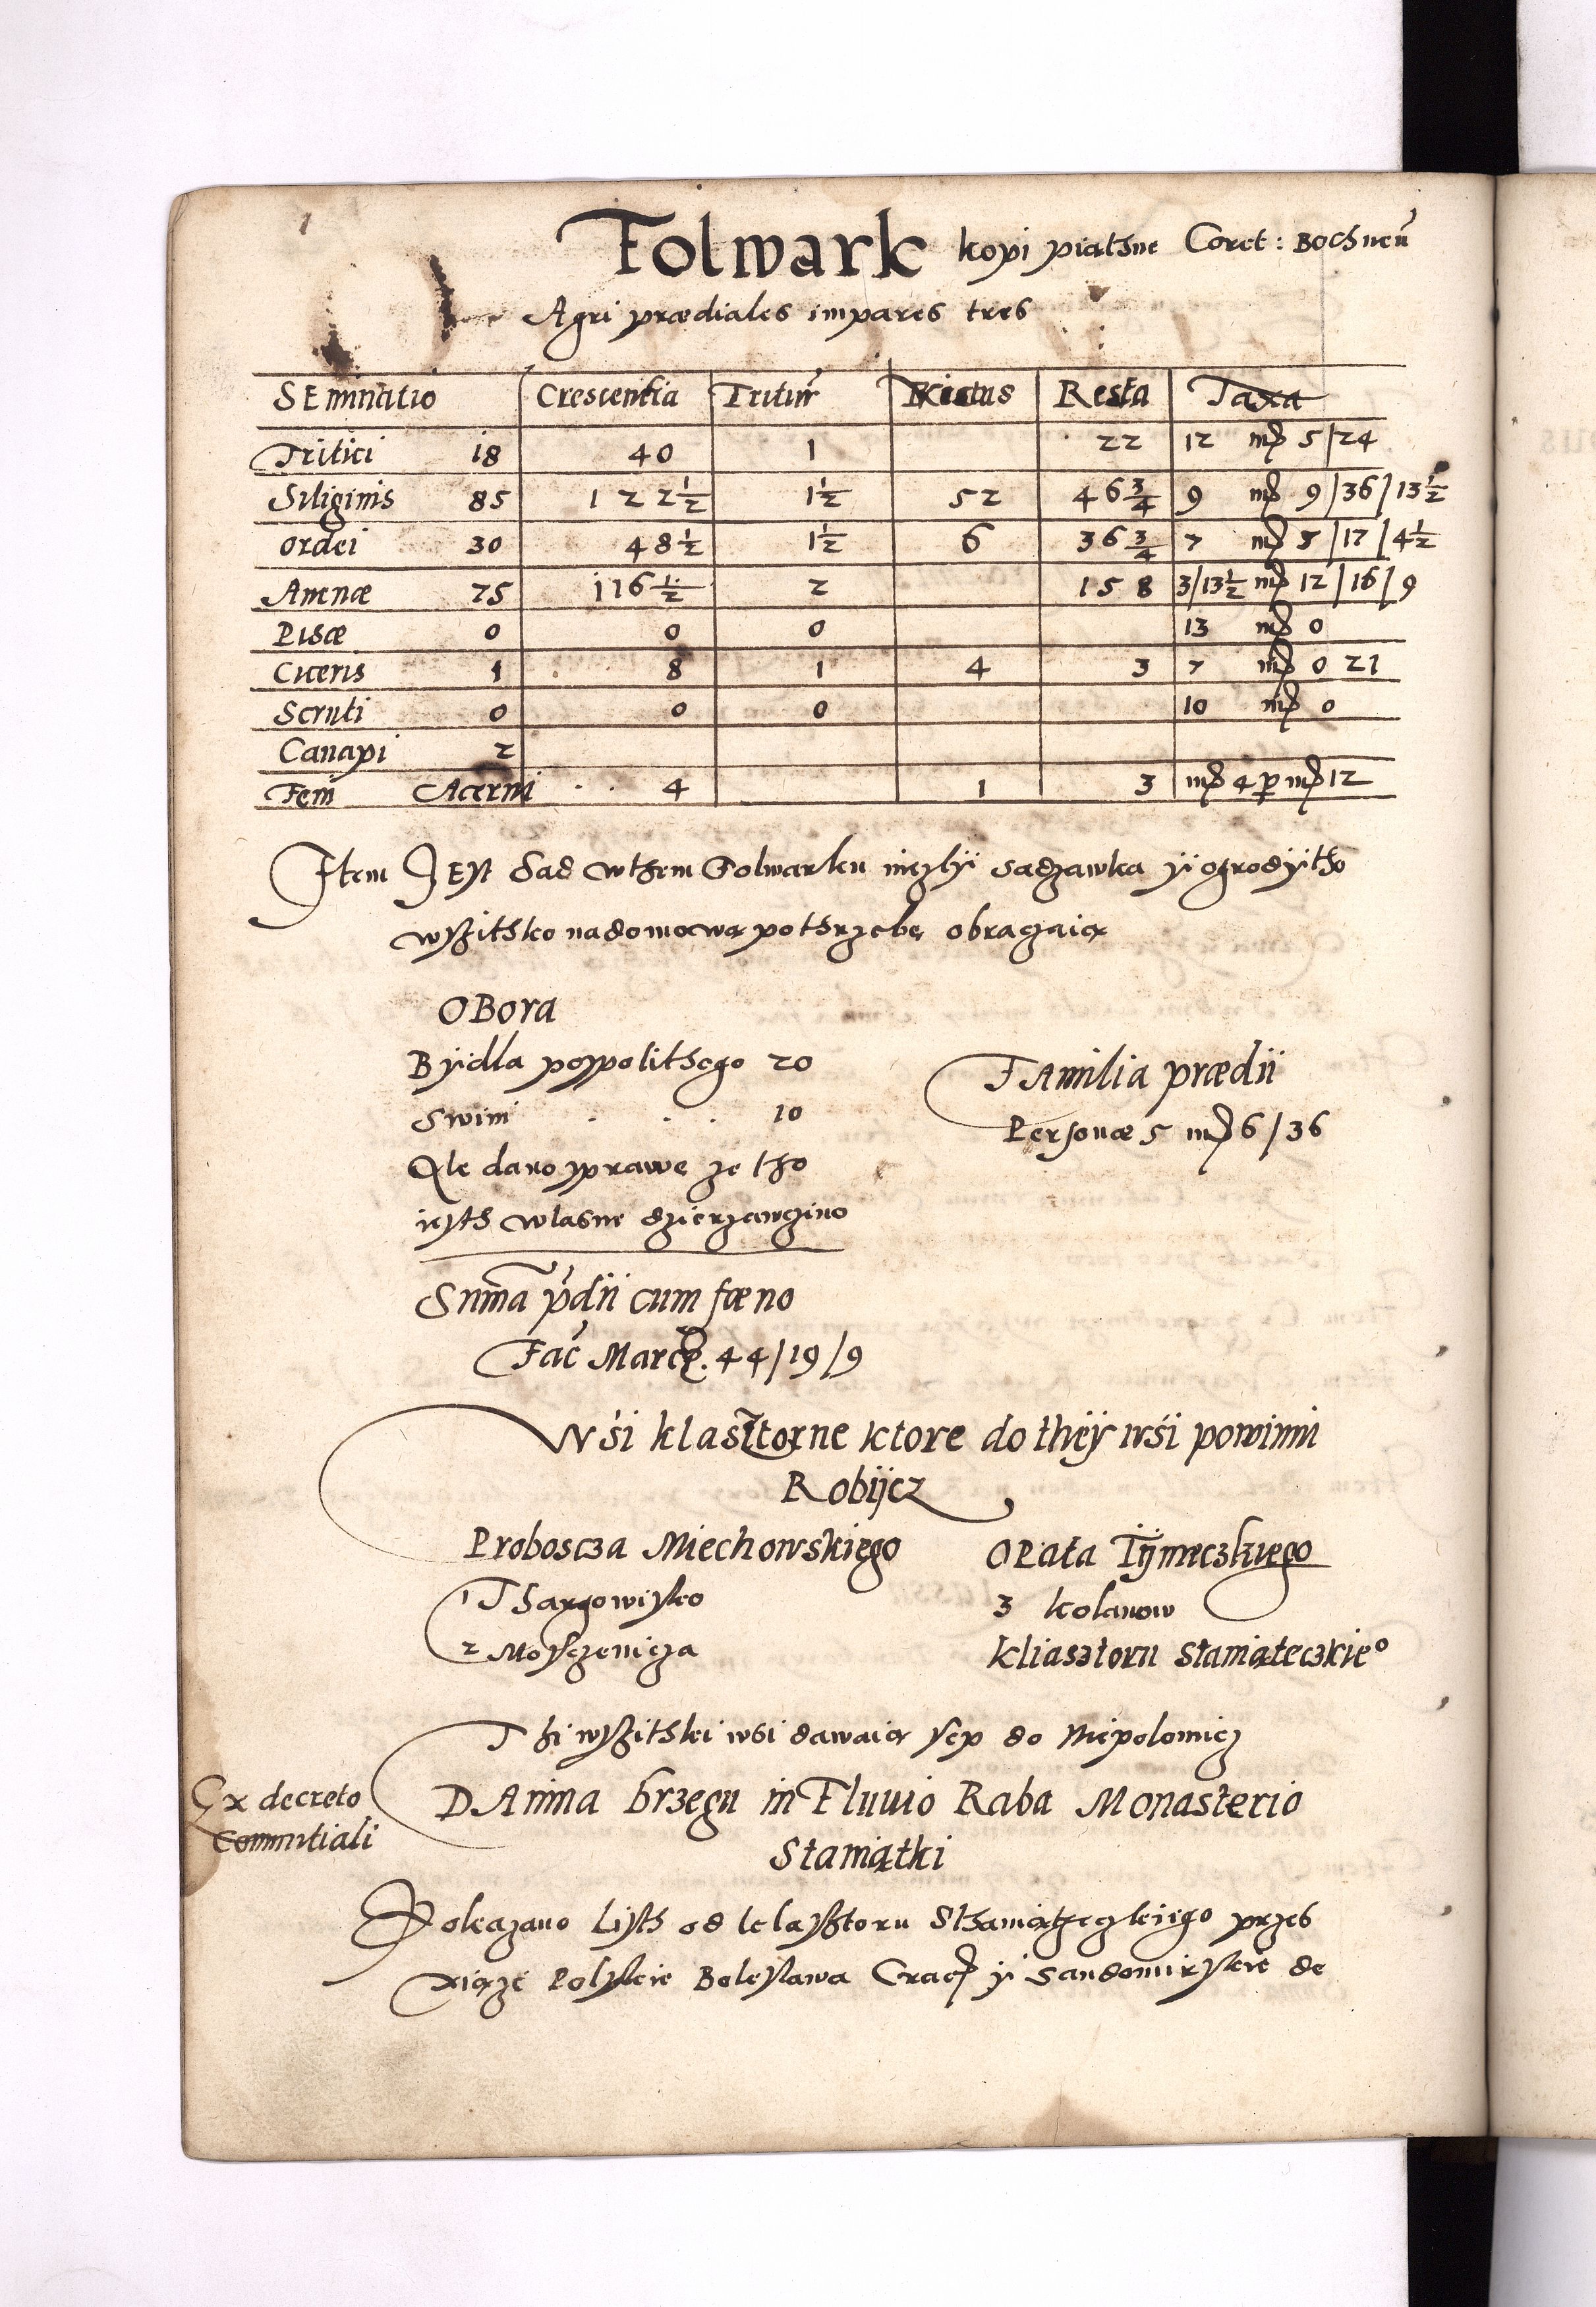 1
Folwark kopi piathne Coret: Bochneñ
Agri prædiales impares tres
SEminatio Crescentia Tritur Victus Resta Taxa
Tritici 18 40 1 22 12 mr̃ 5/24
Siliginis 85 122 1/2 1 1/2 52 46 3/4 9 mr̃ 9/36/13 1/2
ordei 30 48 1/2 1 1/2 6 36 3/4 7 mr̃ 5/17/4 1/2
Auenæ 75 116 1/2 2 158 3/13 1/2 mr̃ 12/16/9
Pisæ 0 0 0 13 mr̃ 0
Ciceris 1 8 1 4 3 7 mr̃ 0 21
Scruti 0 0 0 10 mr̃ 0
Canapi 2
Feni Acerui 4 1 3 mr̃ 4 p mr̃ 12
Item JEst Sad wthem Folwarku niezlÿ sadzawka ÿ ogrodÿ tho
wszithko na domową pothrzebę obraczaią
OBora
Bÿdla pospolithego 20
Swini . . . 10
Ale dano sprawe ze tho
iesth wlasne dzierzawczino
Suma p̃dii cum fœno
Fac̃ Marcr̃. 44/19/9
FAmilia prædii
Personæ 5 mr̃ 6/36
Wśi klasztorne ktore do theÿ wśi powinni
Robijcz
Proboscza Miechowskiego
1 Thargowisko
2 Moszczenicza
OPata Tÿnieczkiego
3 kolanow
Kliasztoru Staniąteczkieº
Thi wszithki wsi dawaią sep do Niepolomicz
Ex decreto
Commitiali
DAnina brzegu in Fluuio Raba Monasterio
Staniątki
Pokazano Listh od klasztoru Sthaniątheczkiego przes
xiąze Polskie Boleslawa Crac̃ ÿ Sandomirskie de